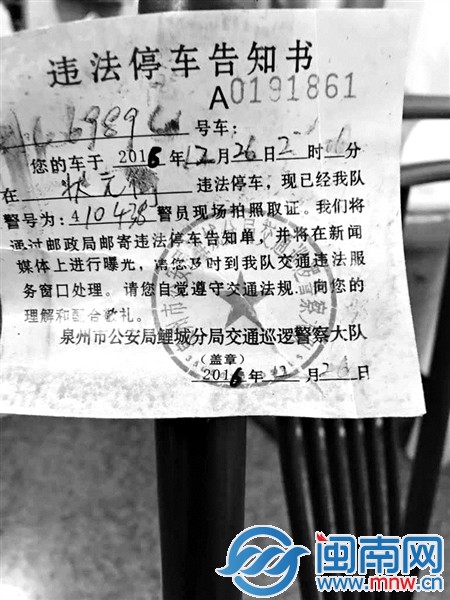 违法停车告知书
A0191861
6989 号车：
您的车于 2016 年 12 月 26 日 2 时 分
在 状元街 违法停车，现已经我队
警号为：410438 警员现场拍照取证。我们将
通过邮政局邮寄违法停车告知单，并将在新闻
媒体上进行曝光，请您及时到我队交通违法服
务窗口处理。请您自觉遵守交通法规。向您的
理解和配合敬礼。
泉州市公安局鲤城分局交通巡逻警察大队
（盖章）
2016 年 12 月 26 日
闽南网
www.mnw.cn